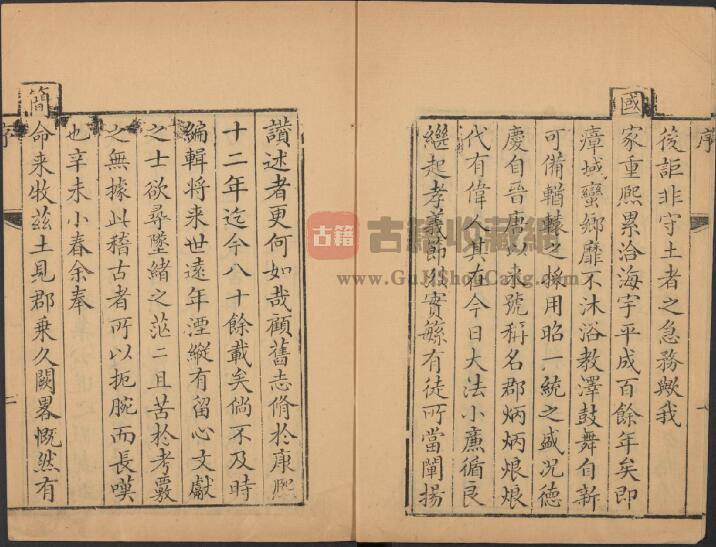 序
後詎非守土者之急務歟我
國
家重熙累洽海宇平成百餘年矣即
瘴城蠻鄉靡不沐浴教澤鼓舞自新
可備輶軒之採用昭一統之盛况德
慶自晉唐以來號稱名郡炳炳烺烺
代有偉人其在今日大法小廉循良
繼起孝義節烈實繁有徒所當闡揚
讚述者更何如哉顧舊志脩於康熙
十二年迄今八十餘載矣倘不及時
編輯將来世遠年湮縱有留心文獻
之士欲尋墜緒之茫二且苦於考覈
之無據此稽古者所以扼腕而長嘆
也辛未小春余奉
簡
命来牧茲土見郡乗久闕畧慨然有
序
古籍
古籍收藏網
www.GuJiShouCang.com